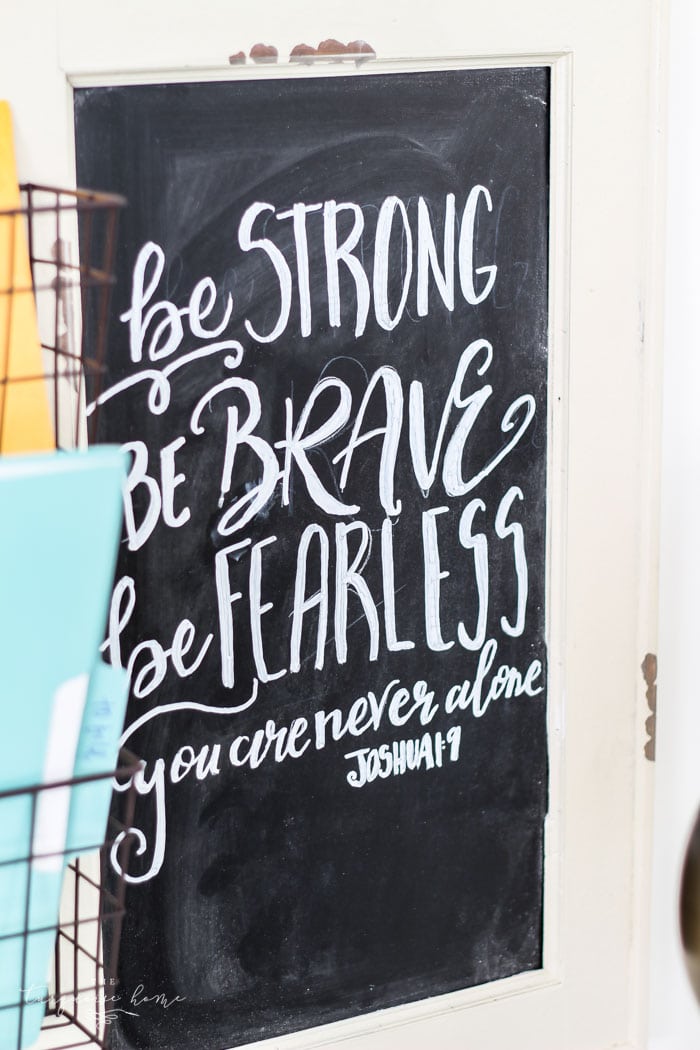 be STRONG
BE BRAVE
be FEARLESS
you are never alone
JOSHUA 1:9
THE
turquoise home